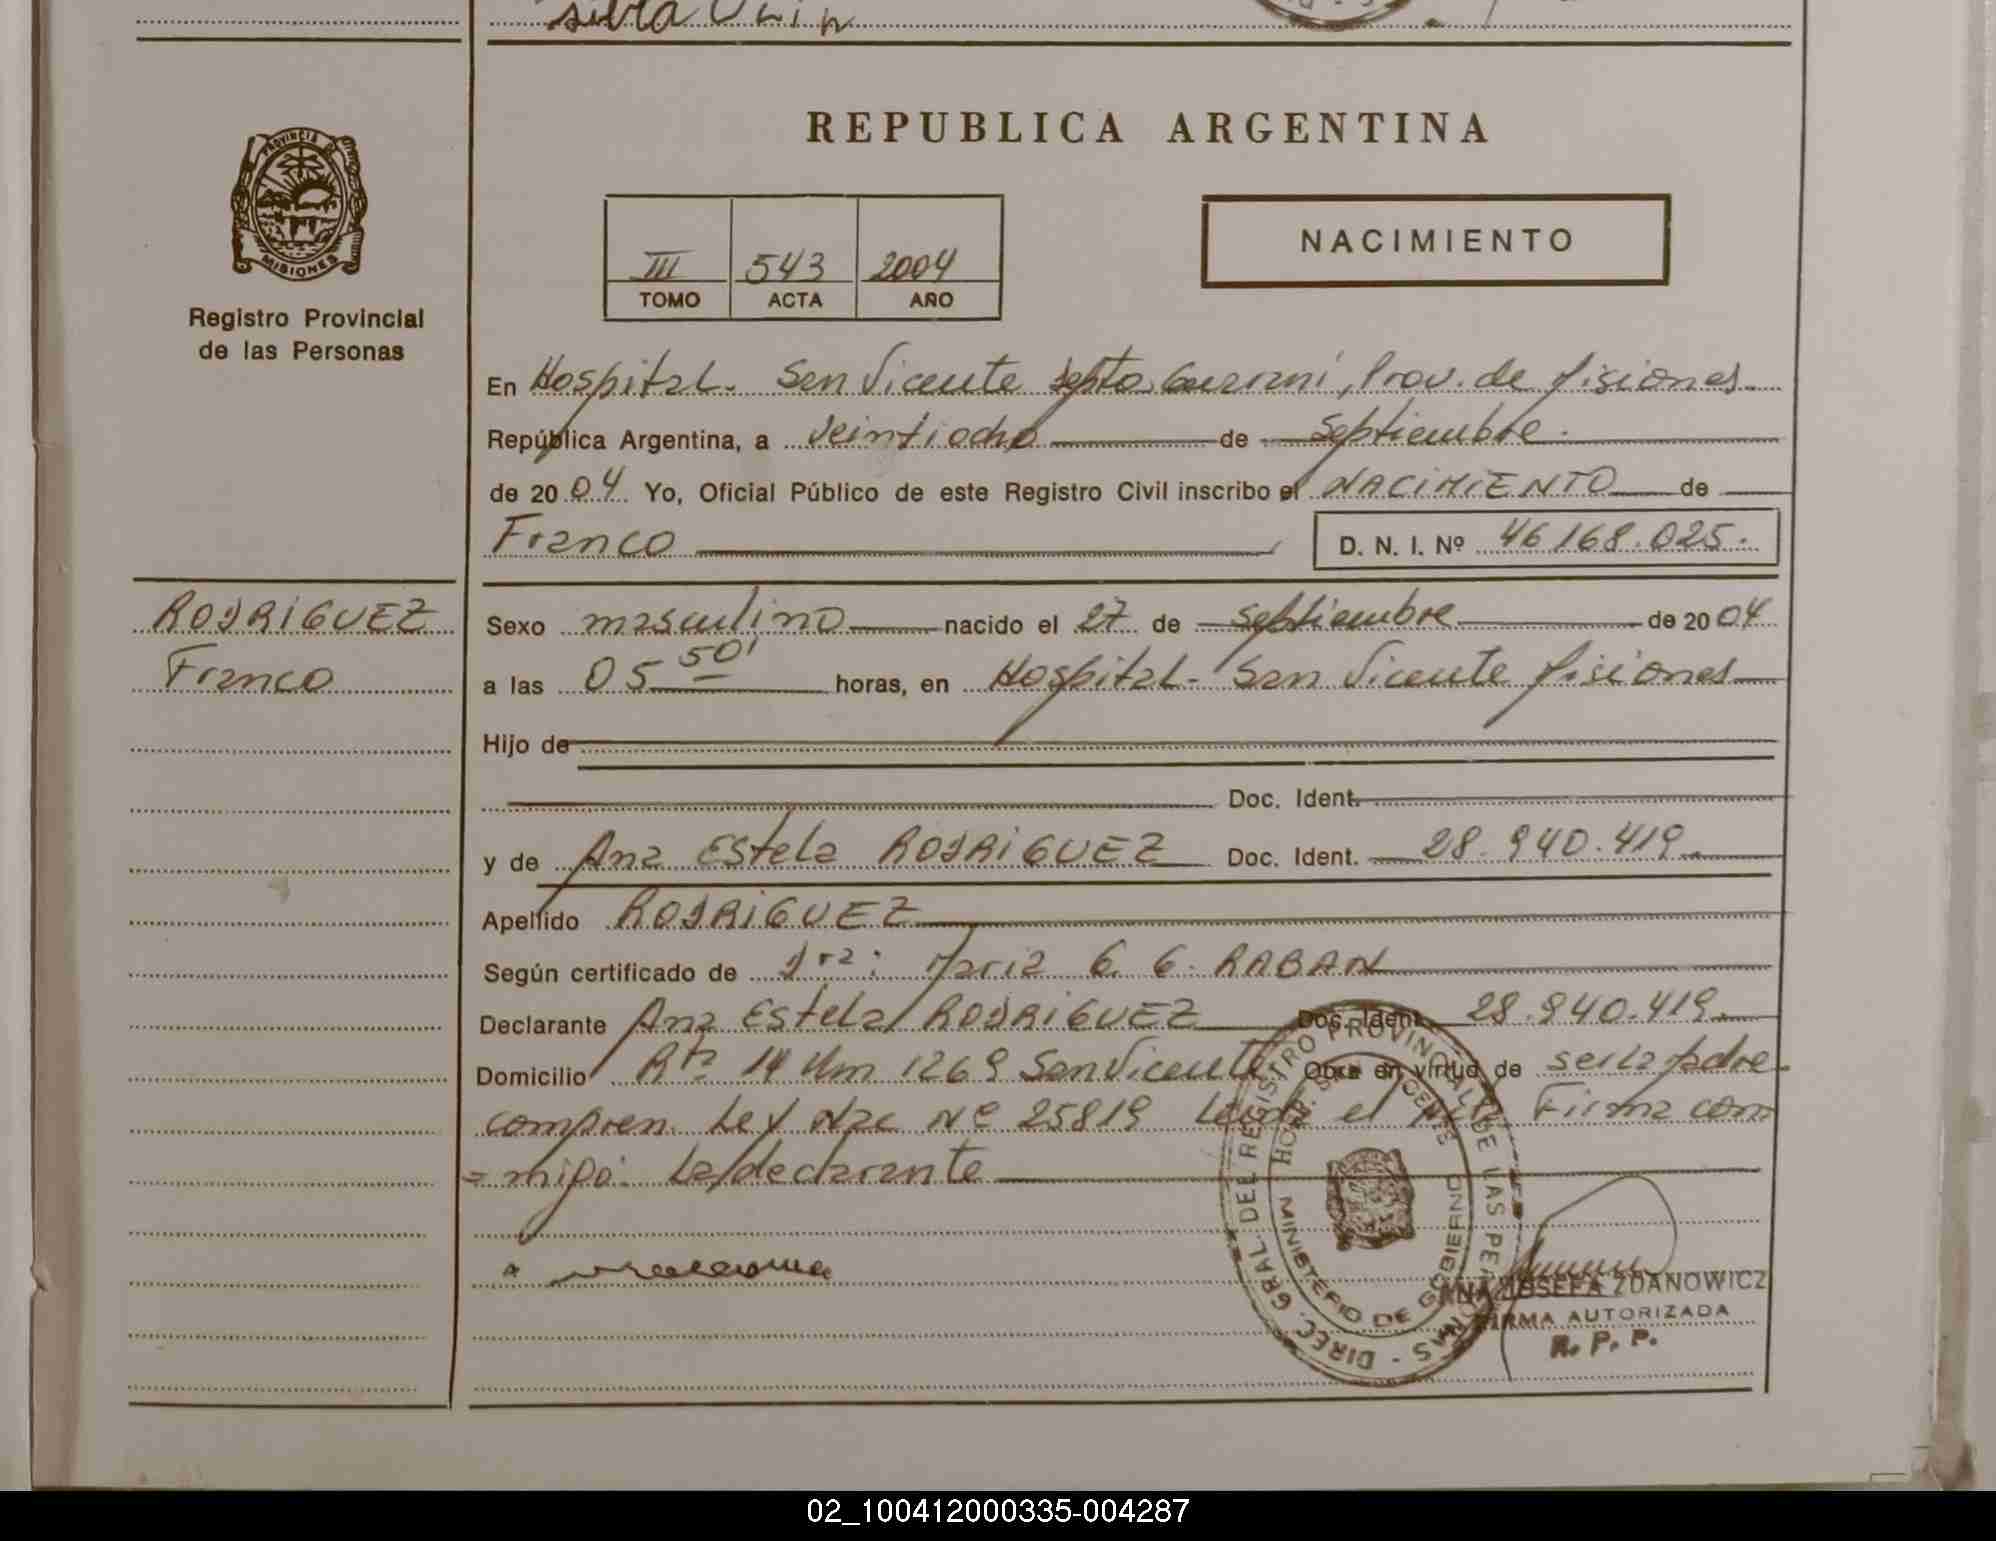 silva
REPUBLICA ARGENTINA
PROVINCIA DE
MISIONES
Registro Provincial
de las Personas
NACIMIENTO
III 543 2004
TOMO ACTA AÑO
En Hospital. San Vicente Dpto. Guarani, Prov. de Misiones
República Argentina, a Veintiocho de Septiembre.
de 2004 Yo, Oficial Público de este Registro Civil inscribo el NACIMIENTO de
Franco D. N. I. Nº 46168.025.
RODRIGUEZ
Franco
Sexo masculino nacido el 27 de Septiembre de 2004
a las 05 50' horas, en Hospital- San Vicente Misiones
Hijo de
Doc. Ident.
y de Ana Estela RODRIGUEZ Doc. Ident. 28.940.419.
Apellido RODRIGUEZ
Según certificado de Dra: Maria G. G. RABAN
Declarante Ana Estela RODRIGUEZ Doc. Ident. 28.940.419.
Domicilio Rta 14 Km 1269 San Vicente. Obra en virtud de ser la padre
compren. Ley Nac Nº 25819 Leida el Acta Firma con
=migo: La declarante
DIREC. GRAL. DEL REGISTRO PROVINCIAL DE LAS PERSONAS
HOSP. SAN VICENTE
MINISTERIO DE GOBIERNO
ANA JOSEFA ZDANOWICZ
FIRMA AUTORIZADA
R. P. P.
02_100412000335-004287